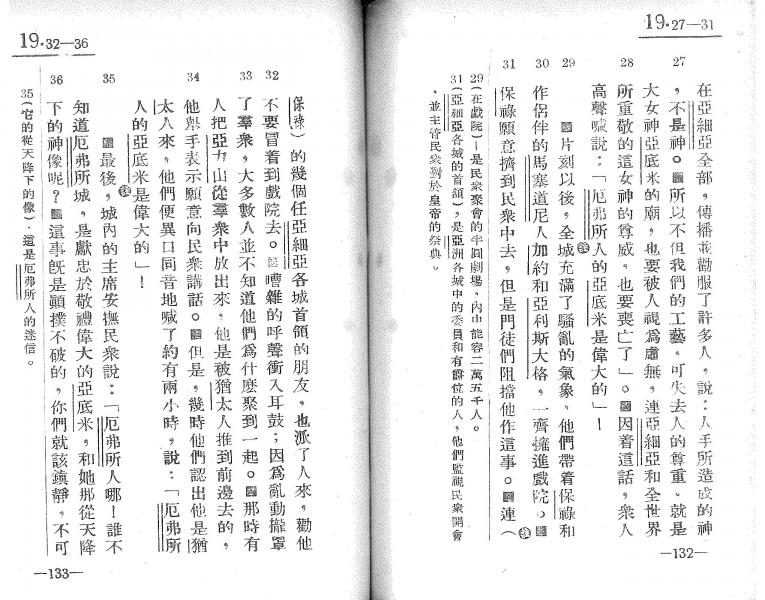 19·27—31
27
在亞細亞全部，傳播並勸服了許多人，說：人手所造成的神
，不是神。所以不但我們的工藝，可失去人的尊重，就是
大女神亞底米的廟，也要被人視爲虛無，連亞細亞和全世界
28
所重敬的這女神的尊威，也要喪亡了」。因着這話，衆人
高聲喊說：「厄弗所人的亞底米是偉大的」！
29
片刻以後，全城充滿了騷亂的氣象，他們帶着保祿和
30
作侶伴的馬塞道尼人加約和亞利斯大格，一齊擁進戲院。
31
保祿願意擠到民衆中去，但是門徒們阻擋他作這事。連（
29（在戲院）—是民衆聚會的半圓劇場，內中能容二萬五千人。
31（亞細亞各城的首領），是亞洲各城中的委員和有爵位的人，他們監視民衆開會
，並主管民衆對於皇帝的祭典。
—132—
19·32—36
保祿）的幾個任亞細亞各城首領的朋友，也派了人來，勸他
32
不要冒着到戲院去。嘈雜的呼聲衝入耳鼓；因爲亂動攏罩
33
了羣衆，大多數人並不知道他們爲什麽聚到一起。那時有
人把亞力山從羣衆中放出來，他是被猶太人推到前邊去的，
34
他舉手表示願意向民衆講話。但是，幾時他們認出他是猶
太人來，他們便異口同音地喊了約有兩小時，說：「厄弗所
人的亞底米是偉大的」！
35
最後，城內的主席安撫民衆說：「厄弗所人哪！誰不
知道厄弗所城，是獻忠於敬禮偉大的亞底米，和她那從天降
36
下的神像呢？這事旣是顚撲不破的，你們就該鎮靜，不可
35（它的從天降下的像）．這是厄弗所人的迷信。
—133—